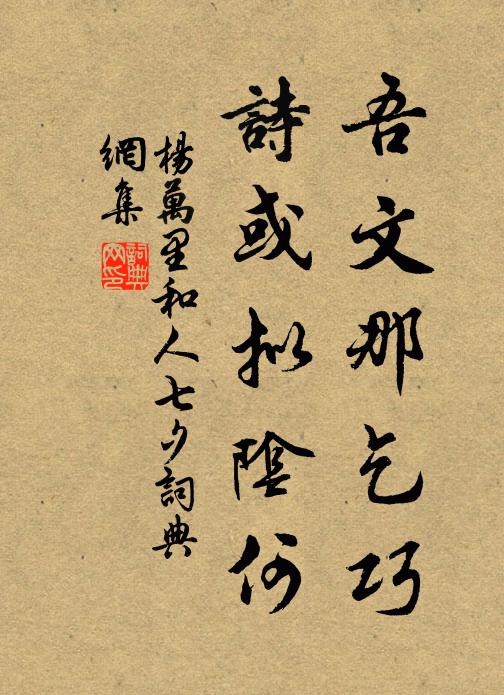 吾文那乞巧
詩或拟陰何
楊萬里和人七夕詞典
網集
詞典
网印